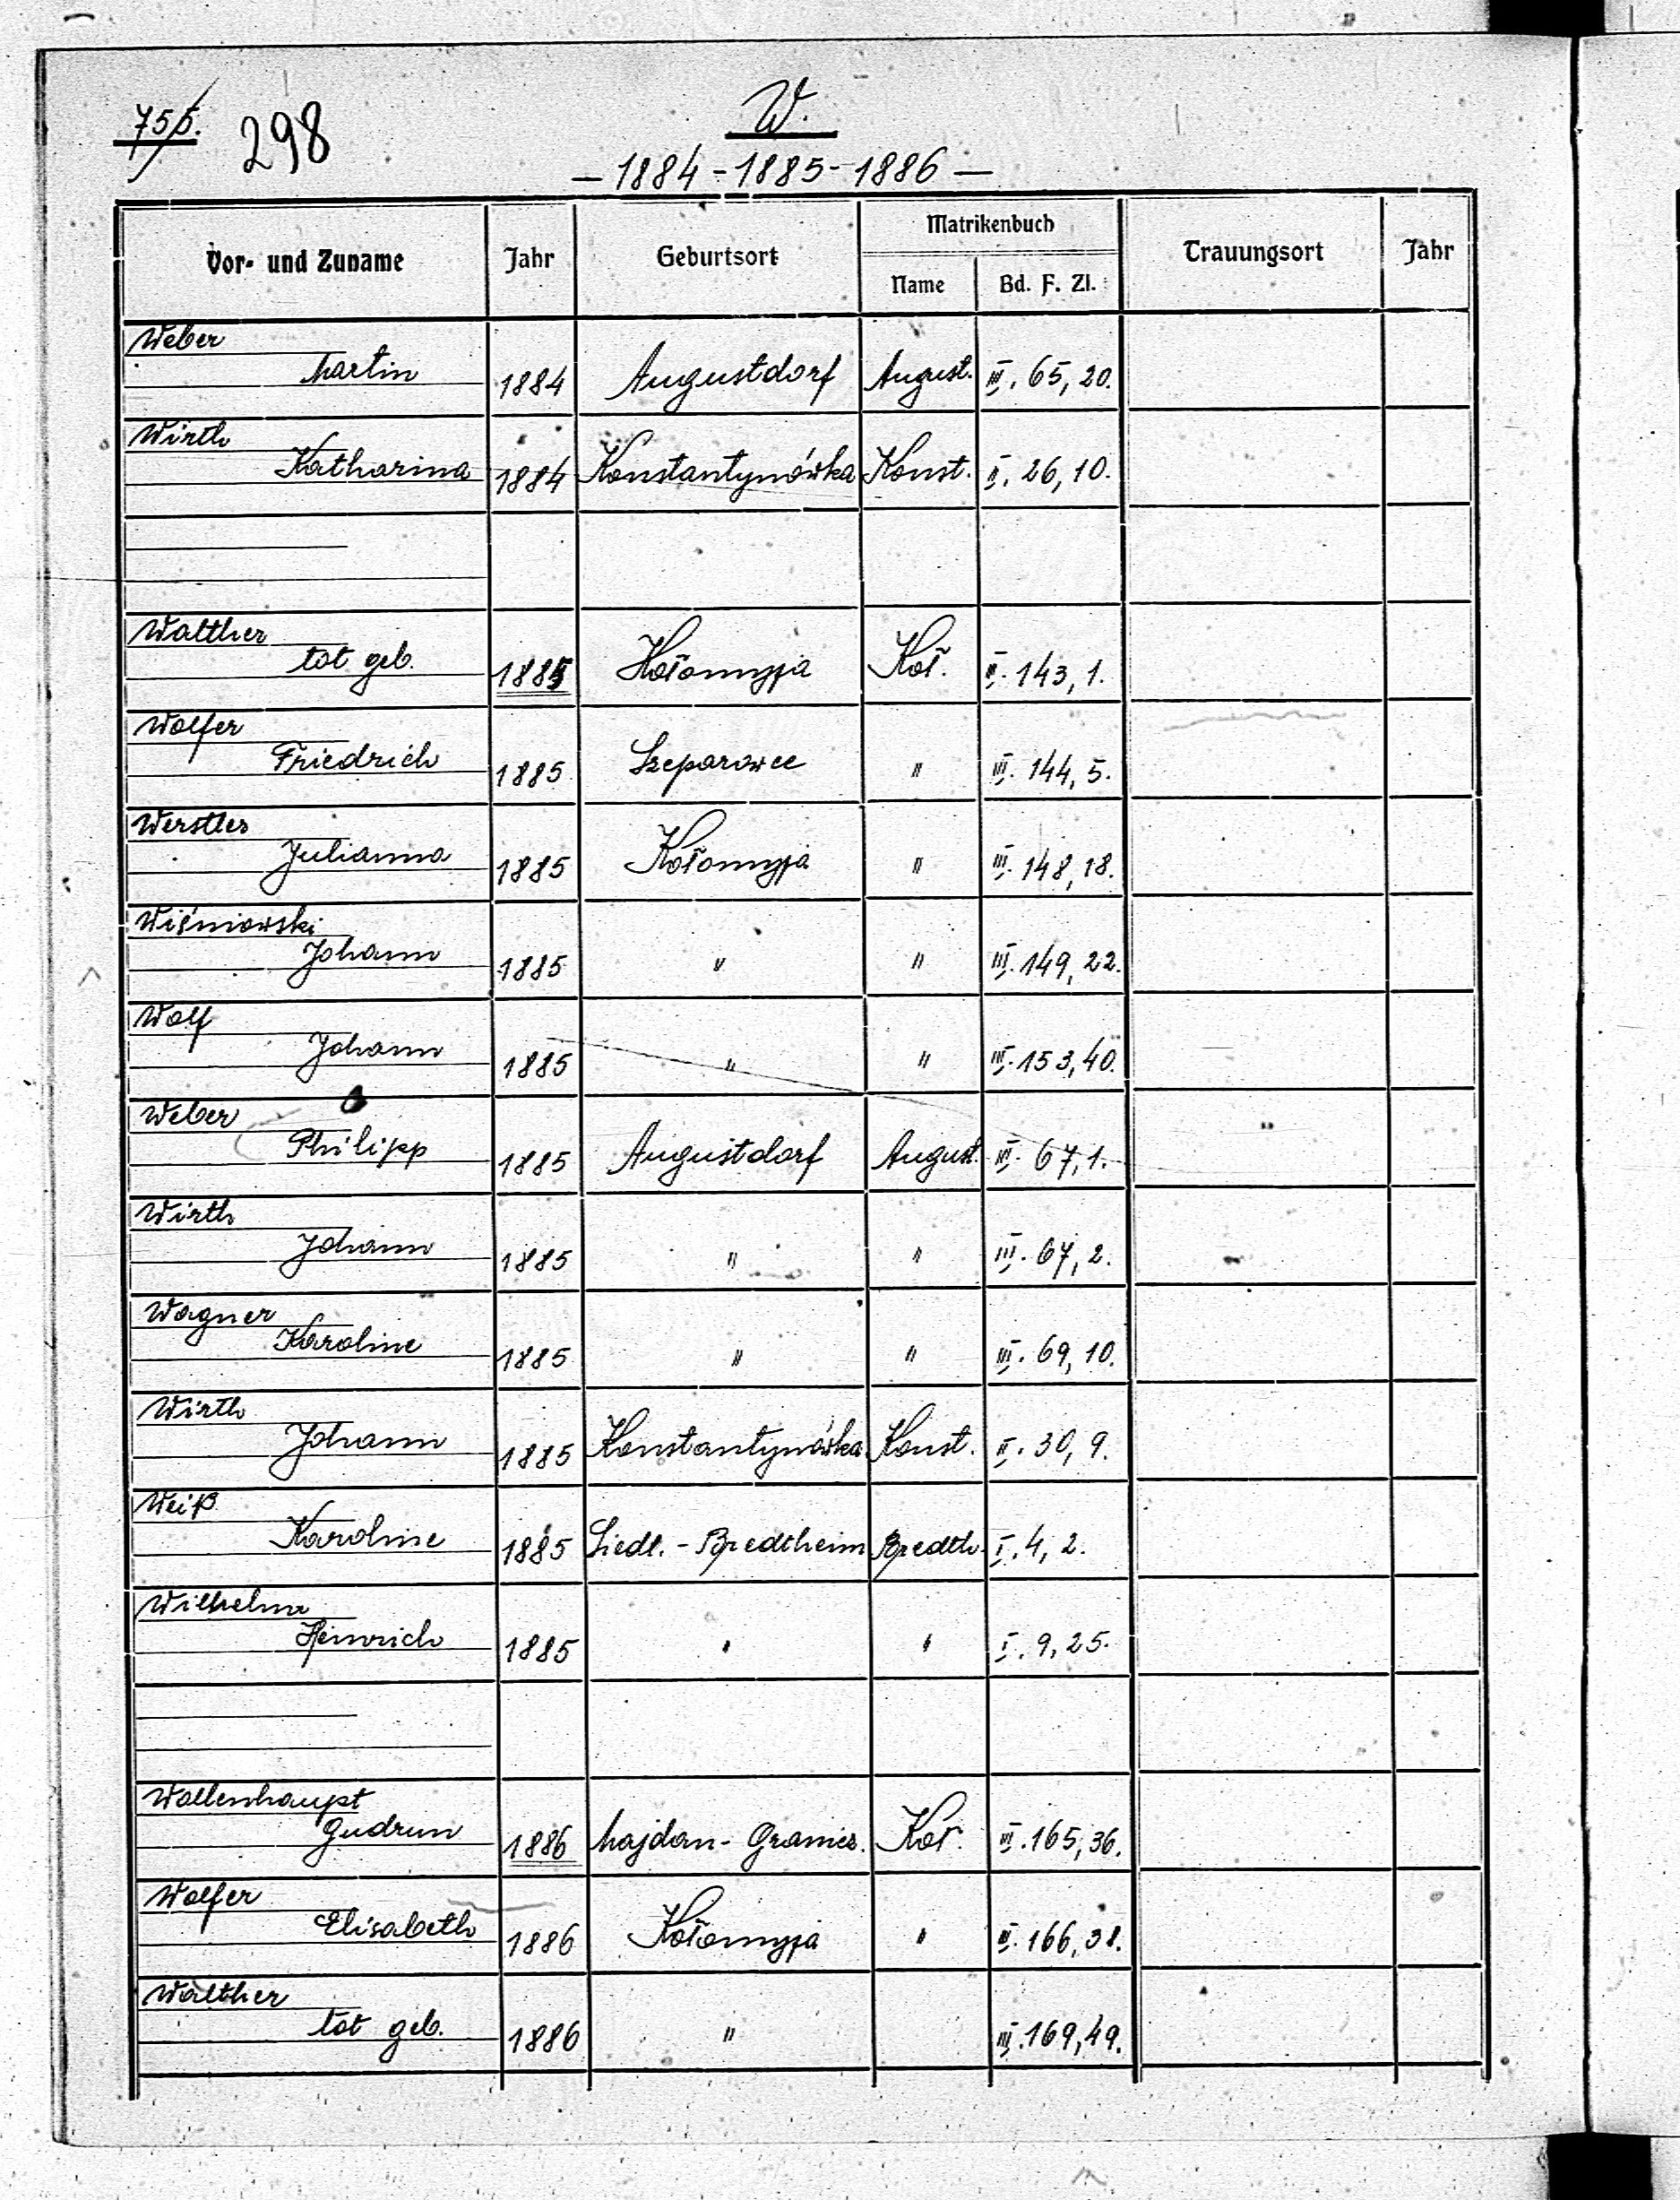 755. 298
W.
— 1884 - 1885 - 1886 —
Vor- und Zuname Jahr Geburtsort Matrikenbuch Trauungsort Jahr
Name Bd. F. Zl.
Weber
Martin 1884 Augustdorf August. III. 65, 20.
Wirth
Katharina 1884 Konstantynówka Konst. II. 26, 10.
Walther
tot geb. 1885 Kołomyja Koł. III. 143, 1.
Wolfer
Friedrich 1885 Szeparowce " III. 144, 5.
Werstler
Julianna 1885 Kołomyja " III. 148, 18.
Wiśniowski
Johann 1885 " " III. 149, 22.
Wolf
Johann 1885 " " III. 153, 40.
Weber
Philipp 1885 Augustdorf August. III. 67, 1.
Wirth
Johann 1885 " " III. 67, 2.
Wagner
Karoline 1885 " " III. 69, 10.
Wirth
Johann 1885 Konstantynówka Konst. II. 30, 9.
Weiß
Karoline 1885 Siedl. - Bredtheim Bredth. I. 4, 2.
Wilhelm
Heinrich 1885 " " I. 9, 25.
Wollenhaupt
Gudrun 1886 Majdan - Granicz. Koł. III. 165, 36.
Wolfer
Elisabeth 1886 Kołomyja " III. 166, 38.
Walther
tot geb. 1886 " III. 169, 49.